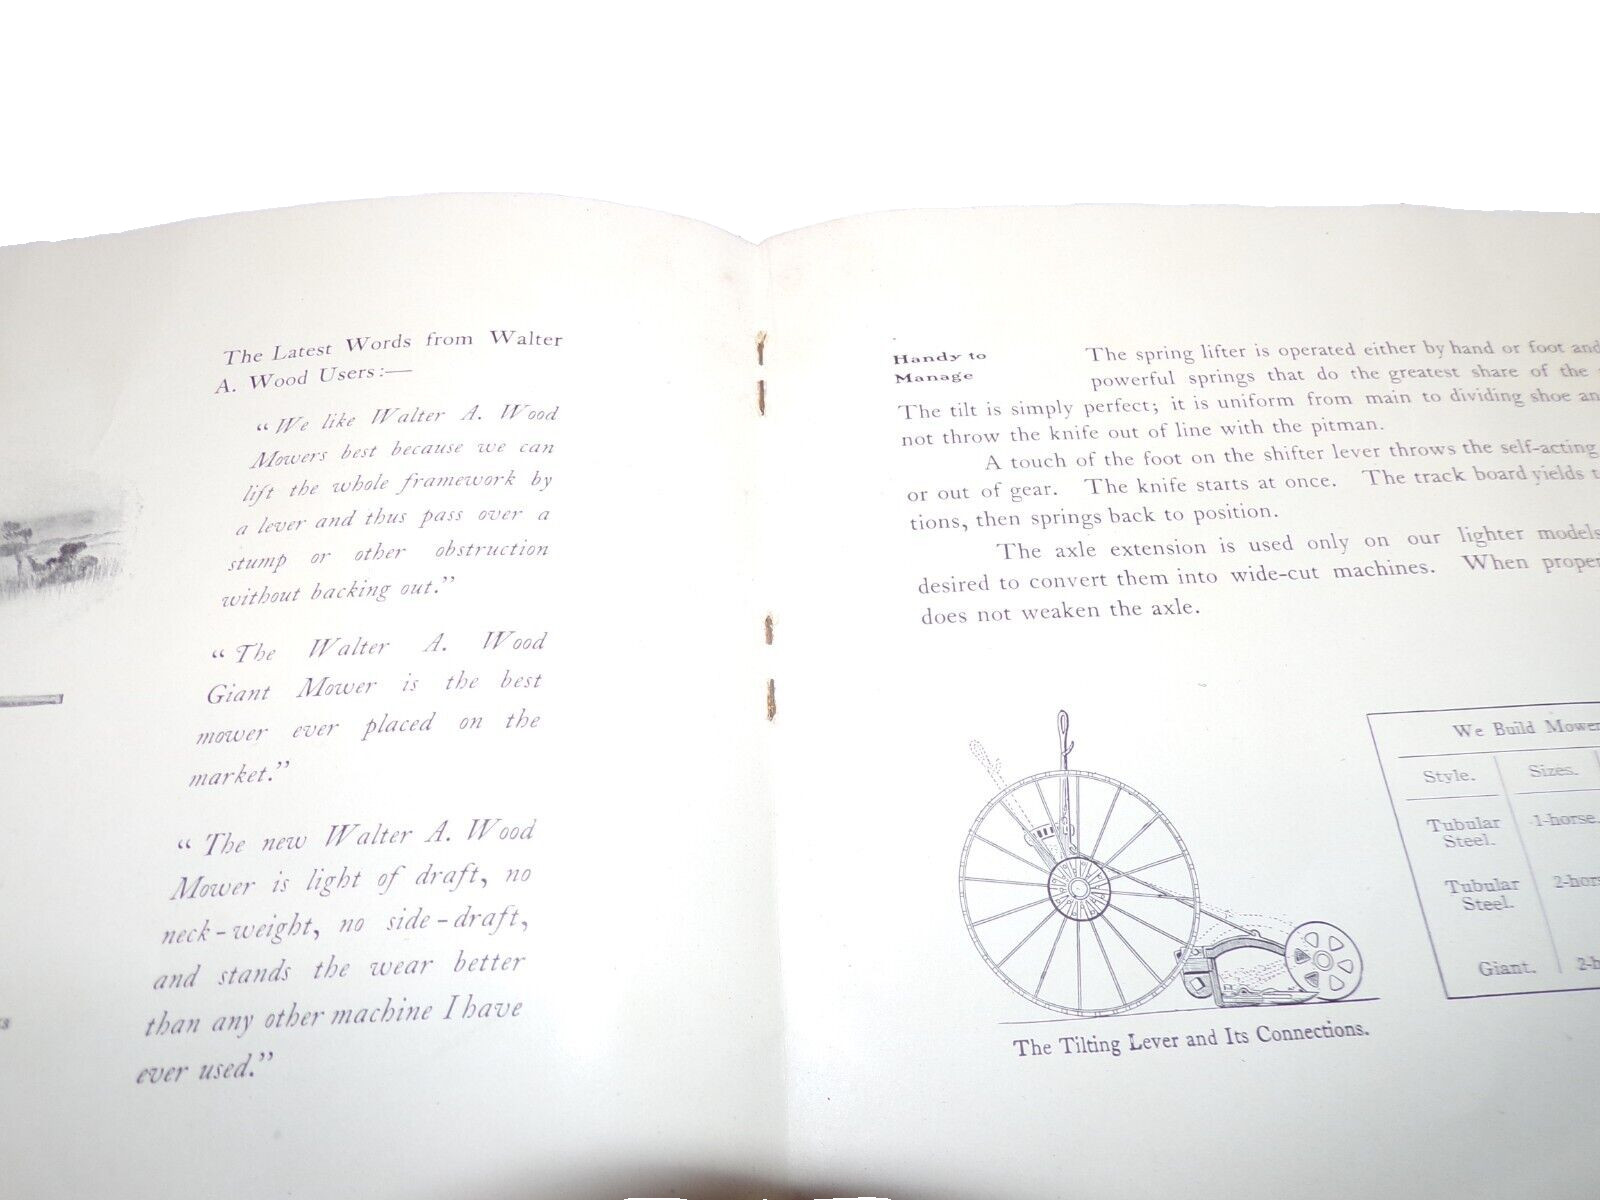 The Latest Words from Walter
A. Wood Users:—
"We like Walter A. Wood
Mowers best because we can
lift the whole framework by
a lever and thus pass over a
stump or other obstruction
without backing out."
"The Walter A. Wood
Giant Mower is the best
mower ever placed on the
market."
"The new Walter A. Wood
Mower is light of draft, no
neck-weight, no side-draft,
and stands the wear better
than any other machine I have
ever used."
Handy to
Manage
The spring lifter is operated either by hand or foot and
powerful springs that do the greatest share of the
The tilt is simply perfect; it is uniform from main to dividing shoe
not throw the knife out of line with the pitman.
A touch of the foot on the shifter lever throws the self-acting
or out of gear. The knife starts at once. The track board yields
tions, then springs back to position.
The axle extension is used only on our lighter models
desired to convert them into wide-cut machines. When proper
does not weaken the axle.
The Tilting Lever and Its Connections.
We Build Mower
Style. Sizes.
Tubular
Steel. 1-horse.
Tubular
Steel. 2-hors
Giant. 2-h